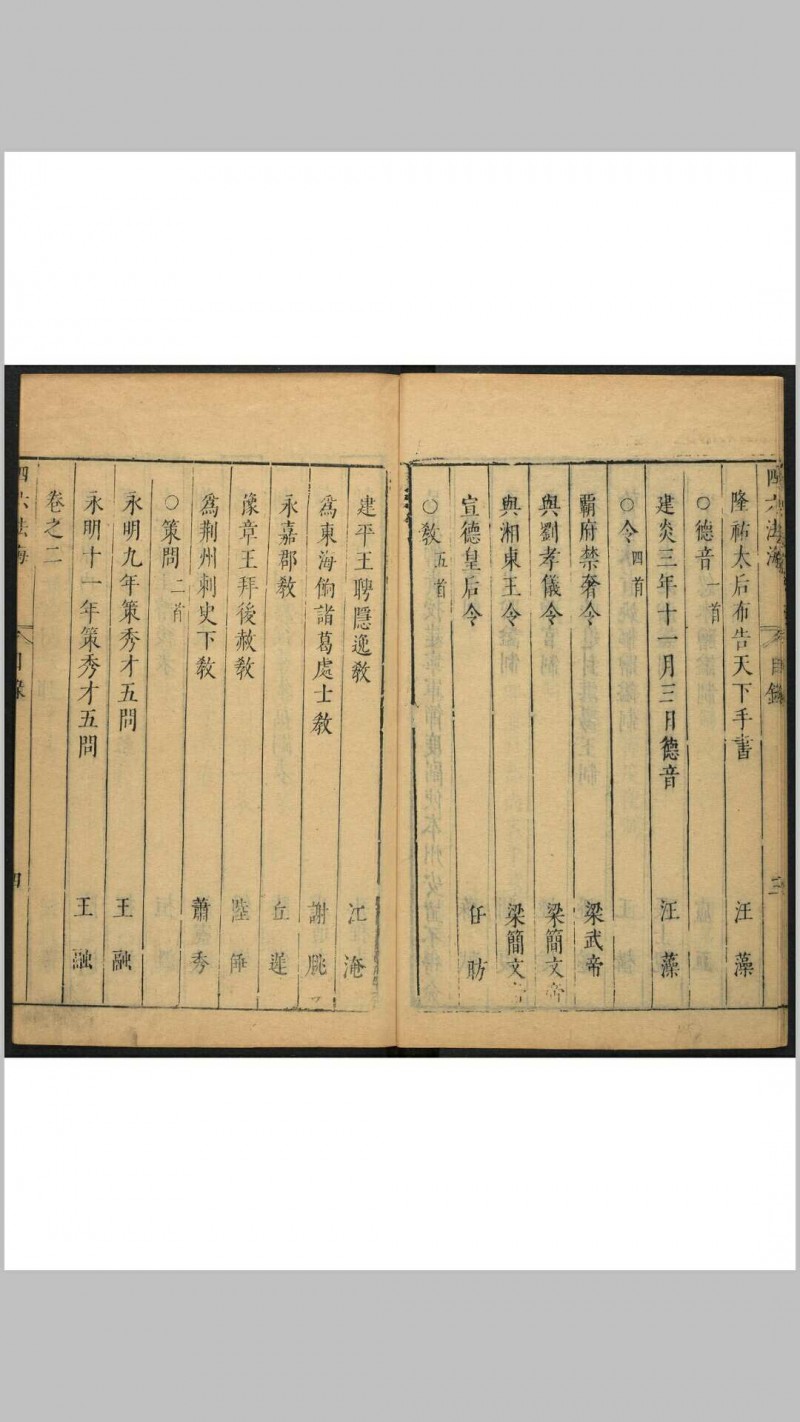 四六法海 目錄 三
隆祐太后布告天下手書 汪藻
○德音一首
建炎三年十一月三日德音 汪藻
○令四首
霸府禁奢令 梁武帝
與劉孝儀令 梁簡文帝
與湘東王令 梁簡文帝
宣德皇后令 任昉
○敎五首
建平王聘隱逸敎 江淹
爲東海餉諸葛處士敎 謝朓
永嘉郡敎 丘遲
豫章王拜後赦敎 陸倕
爲荆州刺史下敎 蕭秀
○策問二首
永明九年策秀才五問 王融
永明十一年策秀才五問 王融
卷之二
四六法海 目錄 四